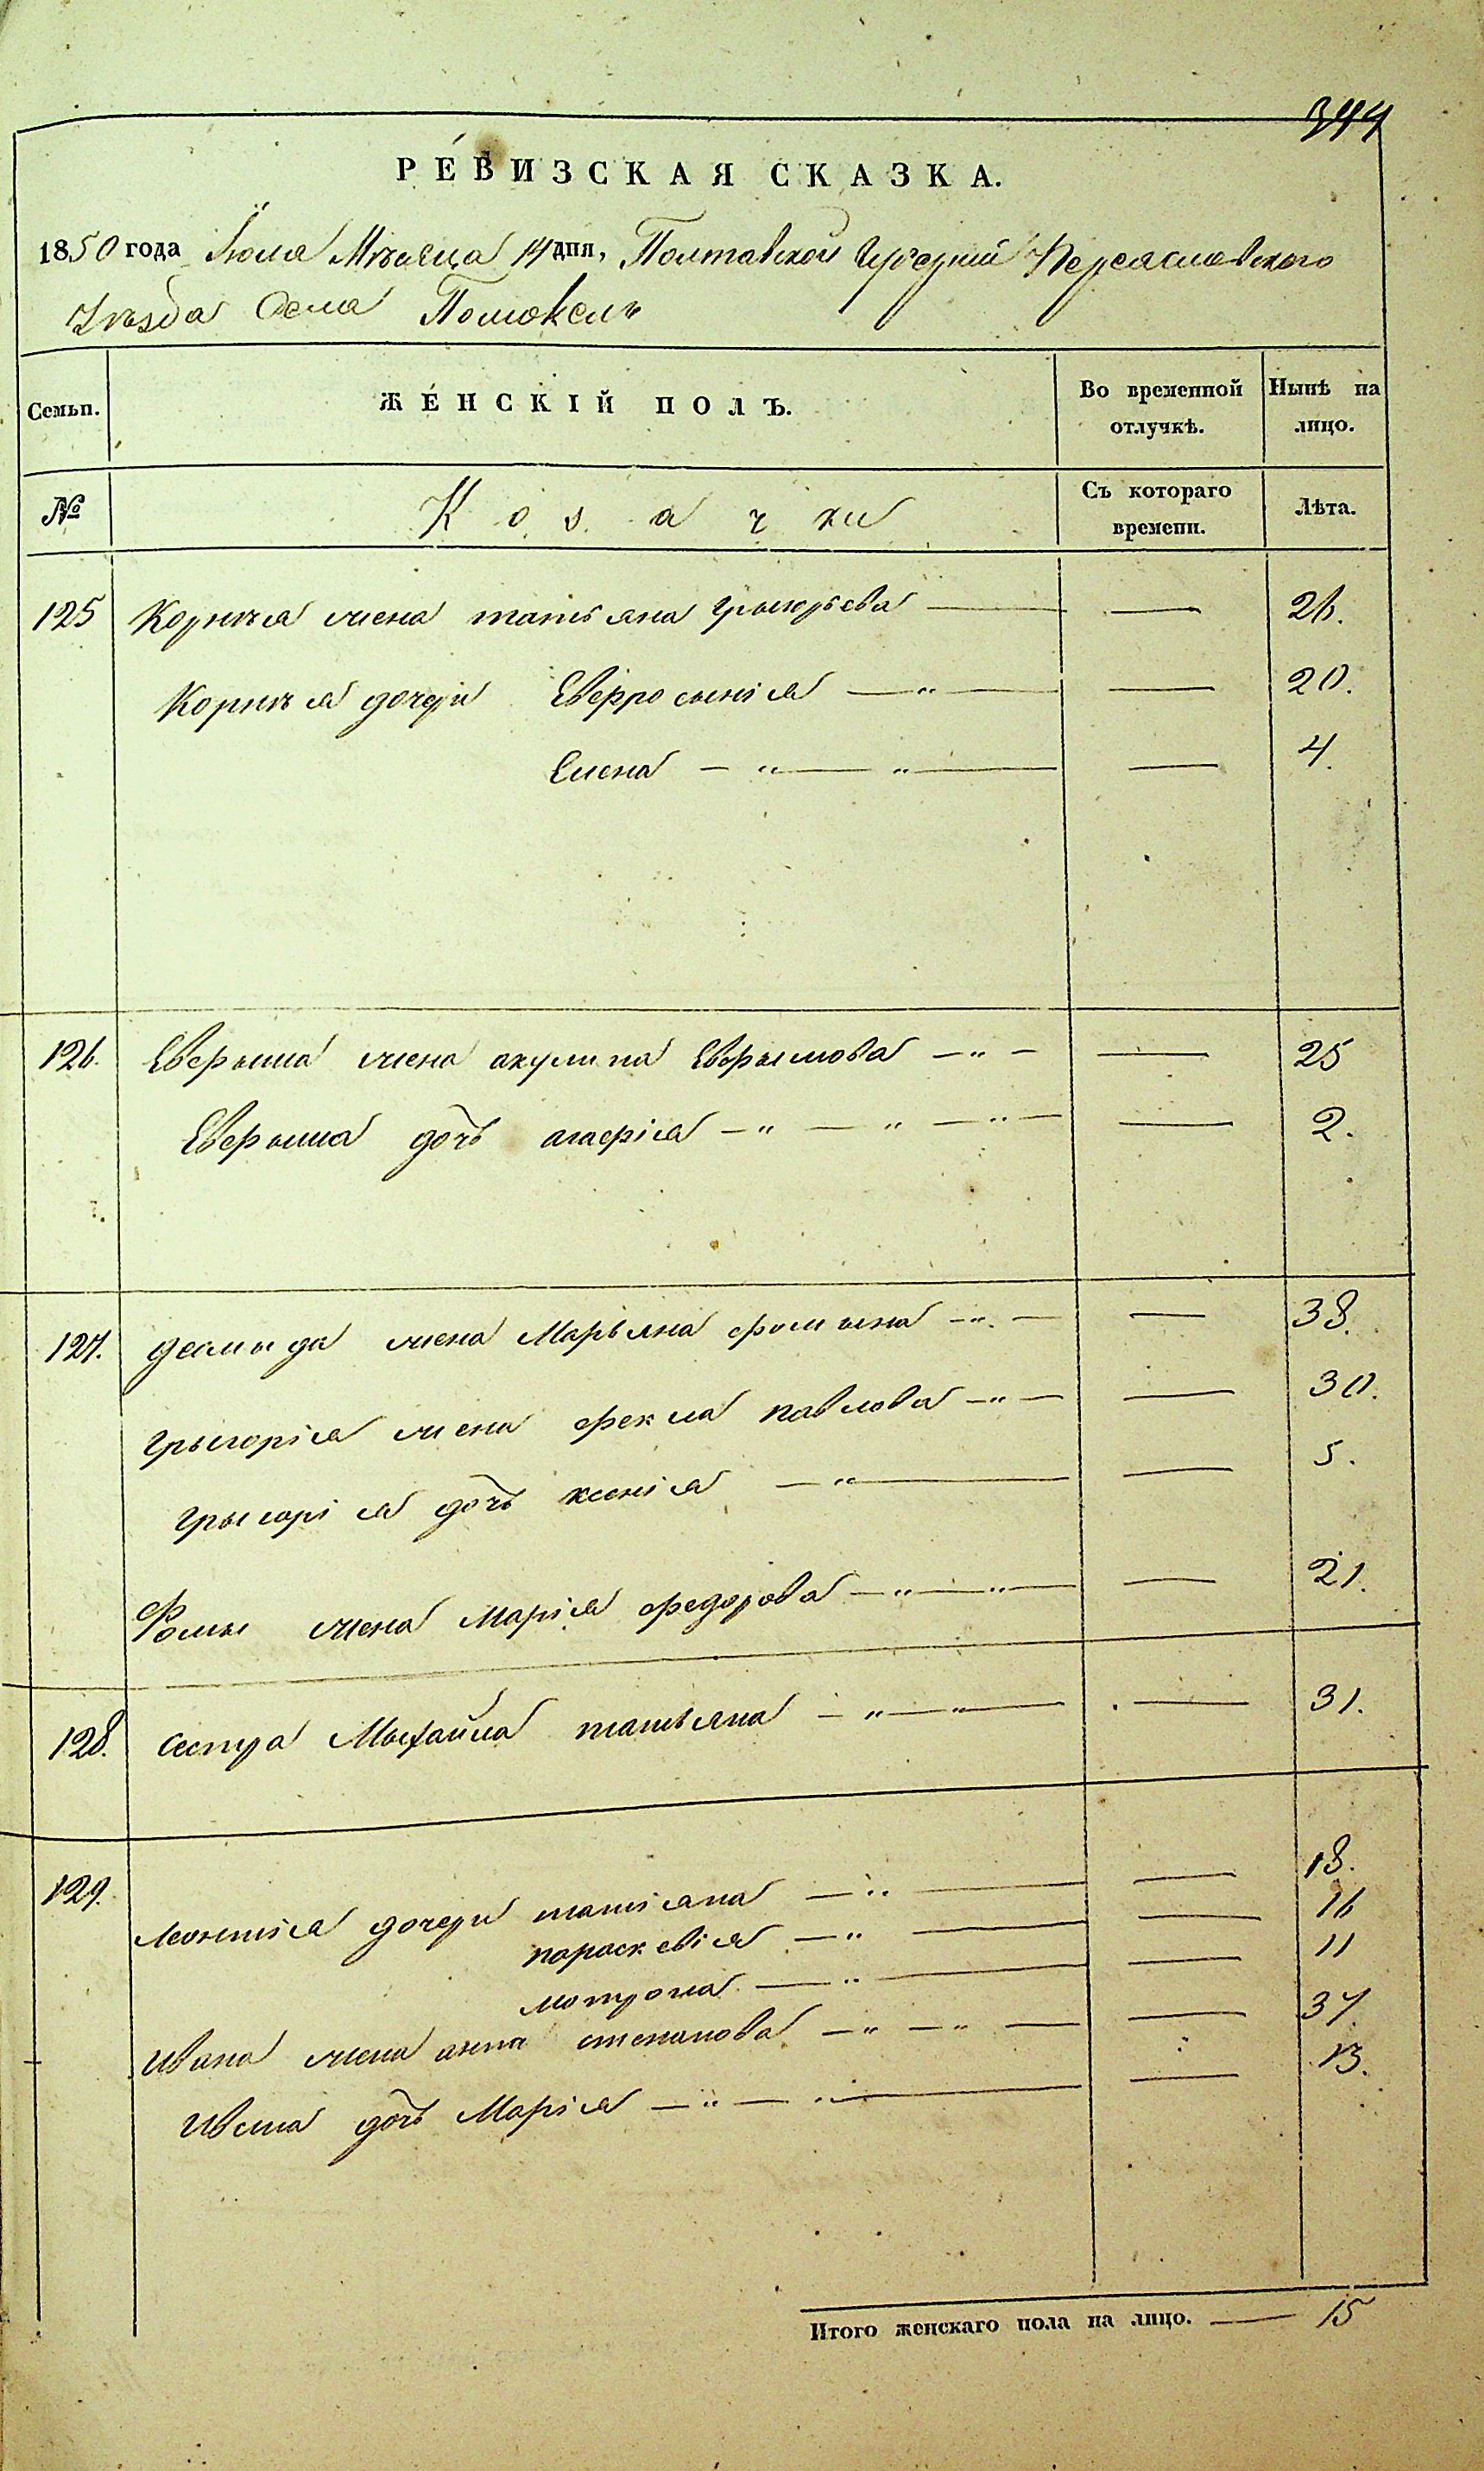 344
РЕ́ВИЗСКАЯ СКАЗКА.
1850 года Июля Мѣсяца 14 дня, Полтавской Губерніи Переяславского
Уѣзда Села Помоклѣ
Семьи.
ЖЕ́НСКІЙ ПОЛЪ.
Во временной отлучкѣ.
Нынѣ на лицо.
№
Козачки
Съ котораго времени.
Лѣта.
125 Корнѣя жена татьяна Грыгорьева — — 26.
Корнѣя дочери Евфросынія — — 20.
Елена — — 4.
126. Ефрыма жена акулина Ефрымова — — 25
Ефрыма дочь агафія — — 2.
127. демыда жена Марьяна фомына — — 38.
Грыгорія жена фекла павлова — — 30.
Грыгорія дочь ксенія — — 5.
Фомы жена Марія федорова — — 21.
128. сестра Мыхайла татьяна — — 31.
129. Леонтія дочери татіана — — 18.
параскевія — — 16
мотрона — — 11
Ивана жена анна степанова — — 37.
Ивана дочь Марія — — 13.
Итого женскаго пола на лицо. — 15